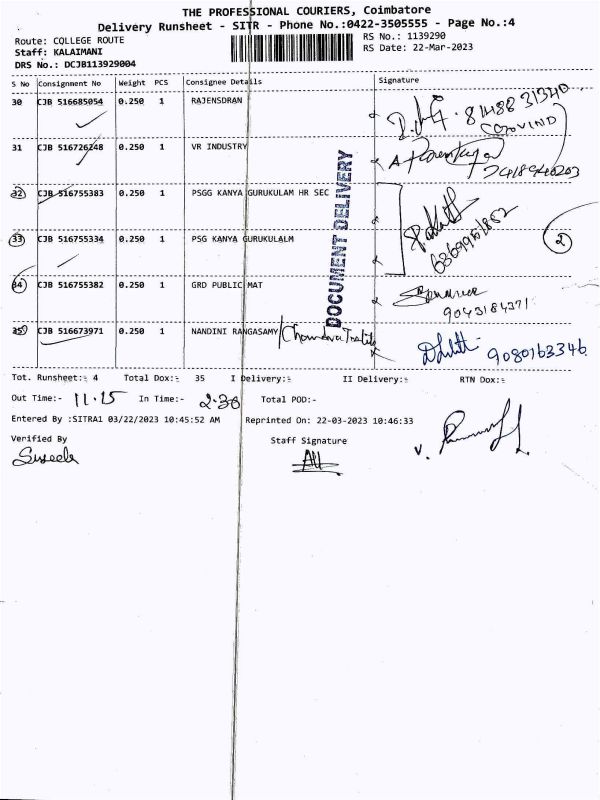 THE PROFESSIONAL COURIERS, Coimbatore
Delivery Runsheet - SITR - Phone No.:0422-3505555 - Page No.:4
Route: COLLEGE ROUTE
RS No.: 1139290
Staff: KALAIMANI
RS Date: 22-Mar-2023
DRS No.: DCJB113929004
S No Consignment No Weight PCS Consignee Details Signature
30 CJB 516685054 0.250 1 RAJENSDRAN 81488 31340
GOVIND
31 CJB 516726248 0.250 1 VR INDUSTRY
32 CJB 516755383 0.250 1 PSGG KANYA GURUKULAM HR SEC
33 CJB 516755334 0.250 1 PSG KANYA GURUKULALM 2
34 CJB 516755382 0.250 1 GRD PUBLIC MAT
9043184371
35 CJB 516673971 0.250 1 NANDINI RANGASAMY 9080163346
DOCUMENT DELIVERY
Tot. Runsheet:: 4 Total Dox:: 35 I Delivery:: II Delivery:: RTN Dox::
Out Time:- 11.15 In Time:- 2.30 Total POD:-
Entered By :SITRA1 03/22/2023 10:45:52 AM Reprinted On: 22-03-2023 10:46:33
Verified By Staff Signature